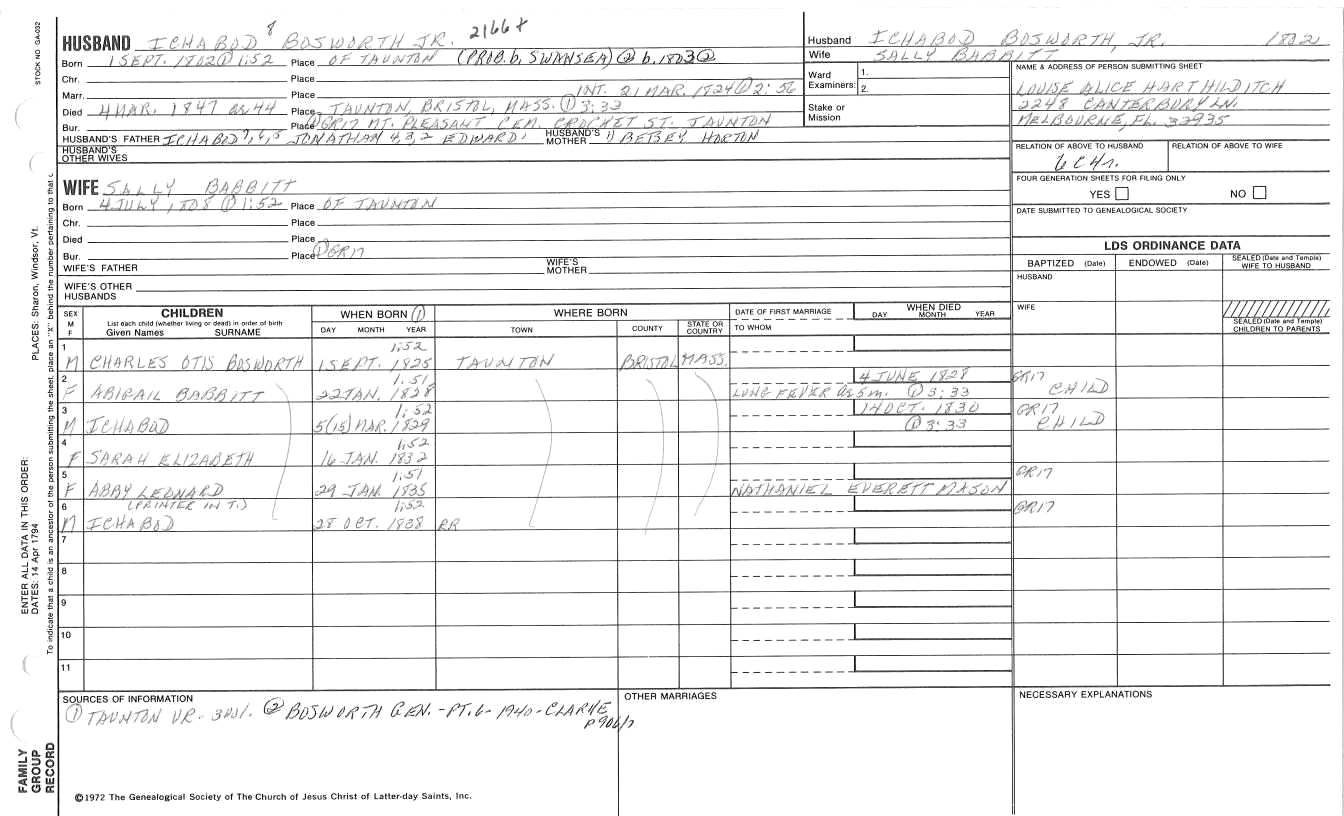 STOCK NO. GA-032
PLACES: Sharon, Windsor, Vt.
ENTER ALL DATA IN THIS ORDER:
DATES: 14 Apr 1794
To indicate that a child is an ancestor of the person submitting the sheet, place an "X" behind the number pertaining to that c
FAMILY
GROUP
RECORD
2166+
HUSBAND ICHABOD 8 BOSWORTH JR.
Born 1 SEPT. 1802 ① 1:52 Place OF TAUNTON (PROB. b. SWANSEA) ② b. 1803 ②
Chr. Place
Marr. Place INT. 21 MAR. 1824 ① 2:56
Died 4 MAR. 1847 ae 44 Place TAUNTON, BRISTOL, MASS. ① 3:33
Bur. Place ① GR17 MT. PLEASANT CEM. CROCKET ST. TAUNTON
HUSBAND'S FATHER ICHABOD 7,6,5 JONATHAN 4,3,2 EDWARD 1 HUSBAND'S MOTHER 1) BETSEY HORTON
HUSBAND'S OTHER WIVES
WIFE SALLY BABBITT
Born 4 JULY, 1808 ① 1:52 Place OF TAUNTON
Chr. Place
Died Place
Bur. Place ① GR17
WIFE'S FATHER WIFE'S MOTHER
WIFE'S OTHER HUSBANDS
Husband ICHABOD BOSWORTH, JR. 1802
Wife SALLY BABBITT
Ward 1.
Examiners: 2.
Stake or Mission
NAME & ADDRESS OF PERSON SUBMITTING SHEET
LOUISE ALICE HART HILDITCH
2248 CANTERBURY LN.
MELBOURNE, FL. 32935
RELATION OF ABOVE TO HUSBAND RELATION OF ABOVE TO WIFE
FOUR GENERATION SHEETS FOR FILING ONLY
YES NO
DATE SUBMITTED TO GENEALOGICAL SOCIETY
LDS ORDINANCE DATA
BAPTIZED (Date) ENDOWED (Date) SEALED (Date and Temple) WIFE TO HUSBAND
HUSBAND
WIFE
SEALED (Date and Temple) CHILDREN TO PARENTS
SEX M F CHILDREN List each child (whether living or dead) in order of birth Given Names SURNAME WHEN BORN ① DAY MONTH YEAR WHERE BORN TOWN COUNTY STATE OR COUNTRY DATE OF FIRST MARRIAGE TO WHOM WHEN DIED DAY MONTH YEAR
1 1:52
M CHARLES OTIS BOSWORTH 1 SEPT. 1825 TAUNTON BRISTOL MASS.
2 1:51 4 JUNE 1828 GR17
F ABIGAIL BABBITT 22 JAN. 1828 LUNG FEVER ae 5m. ① 3:33 CHILD
3 1:52 14 OCT. 1830 GR17
M ICHABOD 5(15) MAR. 1829 ① 3:33 CHILD
4 1:52
F SARAH ELIZABETH 16 JAN. 1832
5 1:51 GR17
F ABBY LEONARD 29 JAN. 1835 NATHANIEL EVERETT MASON
6 (PRINTER IN T.) 1:52 GR17
M ICHABOD 28 OCT. 1838 RR
7
8
9
10
11
SOURCES OF INFORMATION
① TAUNTON VR. ② BOSWORTH GEN. -PT. 6- 1940 -CLARKE
p 906/7
OTHER MARRIAGES
NECESSARY EXPLANATIONS
©1972 The Genealogical Society of The Church of Jesus Christ of Latter-day Saints, Inc.